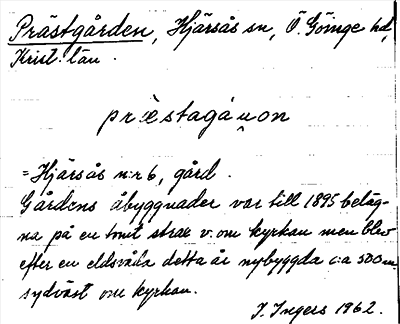 Prästgården, Hjärsås sn, Ö. Göinge hd,
Krist. län.
præstagáu̯on
= Hjärsås n:r 6, gård.
Gårdens åbyggnader var till 1895 beläg-
na på en tomt strax v. om kyrkan men blev
efter en eldsvåda detta år nybyggda c:a 500 m.
sydväst om kyrkan.
I. Ingers 1962.